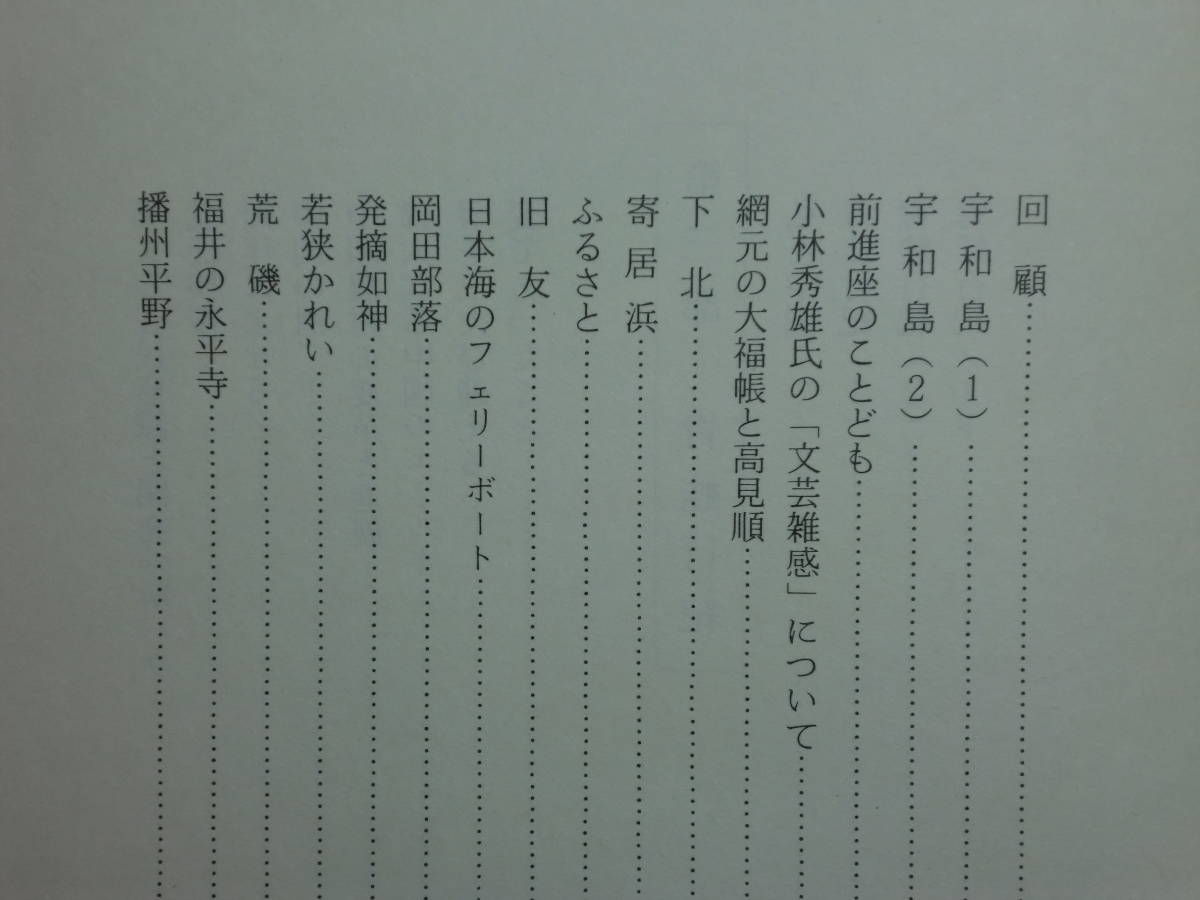 回顧
宇和島（1）
宇和島（2）
前進座のことども
小林秀雄氏の「文芸雑感」について
網元の大福帳と高見順
下北
寄居浜
ふるさと
旧友
日本海のフェリーボート
岡田部落
発摘如神
若狭かれい
荒磯
福井の永平寺
播州平野